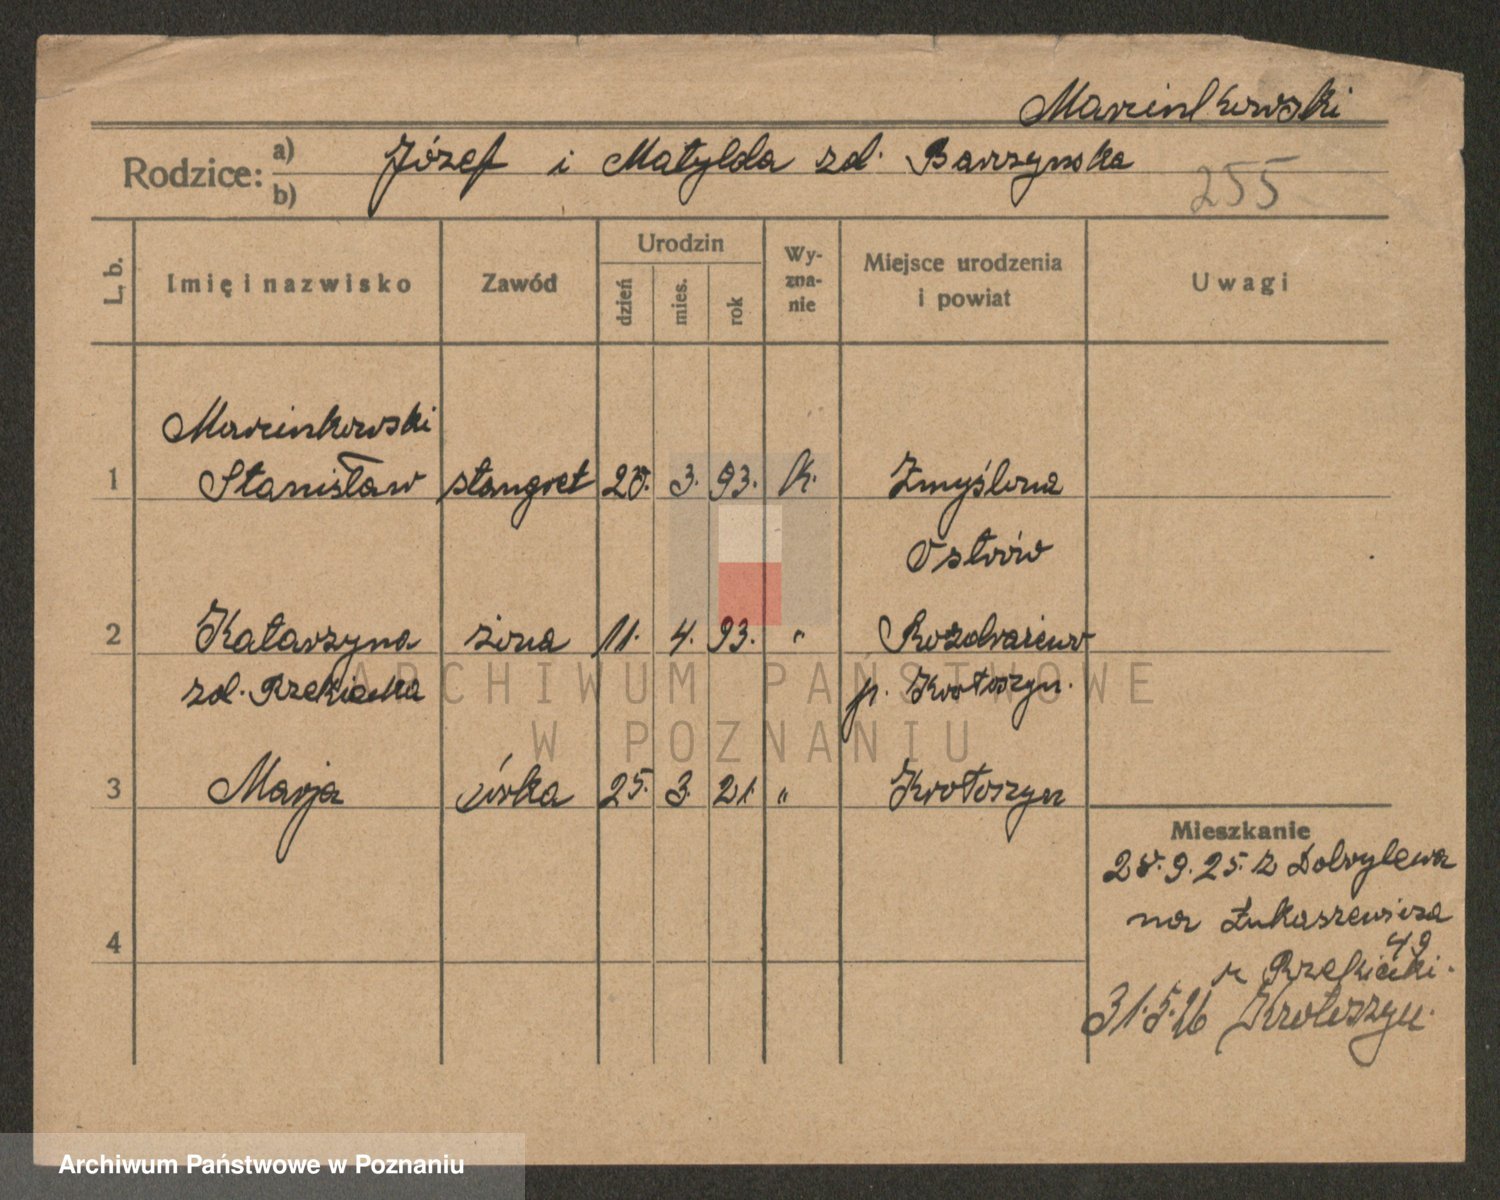 Marcinkowski
Rodzice: a) b) Józef i Matylda zd. Barzyńska
255
L. b. Imię i nazwisko Zawód Urodzin dzień mies. rok Wy-zna-nie Miejsce urodzenia i powiat Uwagi
Marcinkowski
1 Stanisław stangret 20. 3. 93. k. Zmyślona
Ostrów
2 Katarzyna żona 11. 4. 93. " Rozdrażew
zd. Rzekiecka p. Krotoszyn.
3 Marja córka 25. 3. 21. " Krotoszyn
Mieszkanie
28. 9. 25. z Dobrylewa
na Łukaszewicza
49
4
u Rzekiecki.
31. 5. 26 Krotoszyn.
ARCHIWUM PAŃSTWOWE
W POZNANIU
Archiwum Państwowe w Poznaniu